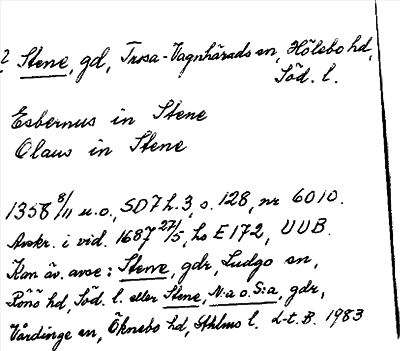 ? Stene, gd, Trosa-Vagnhärads sn, Hölebo hd,
Söd. l.
Esbernus in Stene
Olaus in Stene
1358 8/11 u.o., SD7 h.3, s. 128, nr 6010.
Avskr. i vid. 1687 27/5, hs E172, UUB.
Kan äv. avse: Stene, gdr, Ludgo sn,
Rönö hd, Söd. l. eller Stene, N:a o. S:a, gdr,
Vårdinge sn, Öknebo hd, Sthlms l. L-t. B. 1983